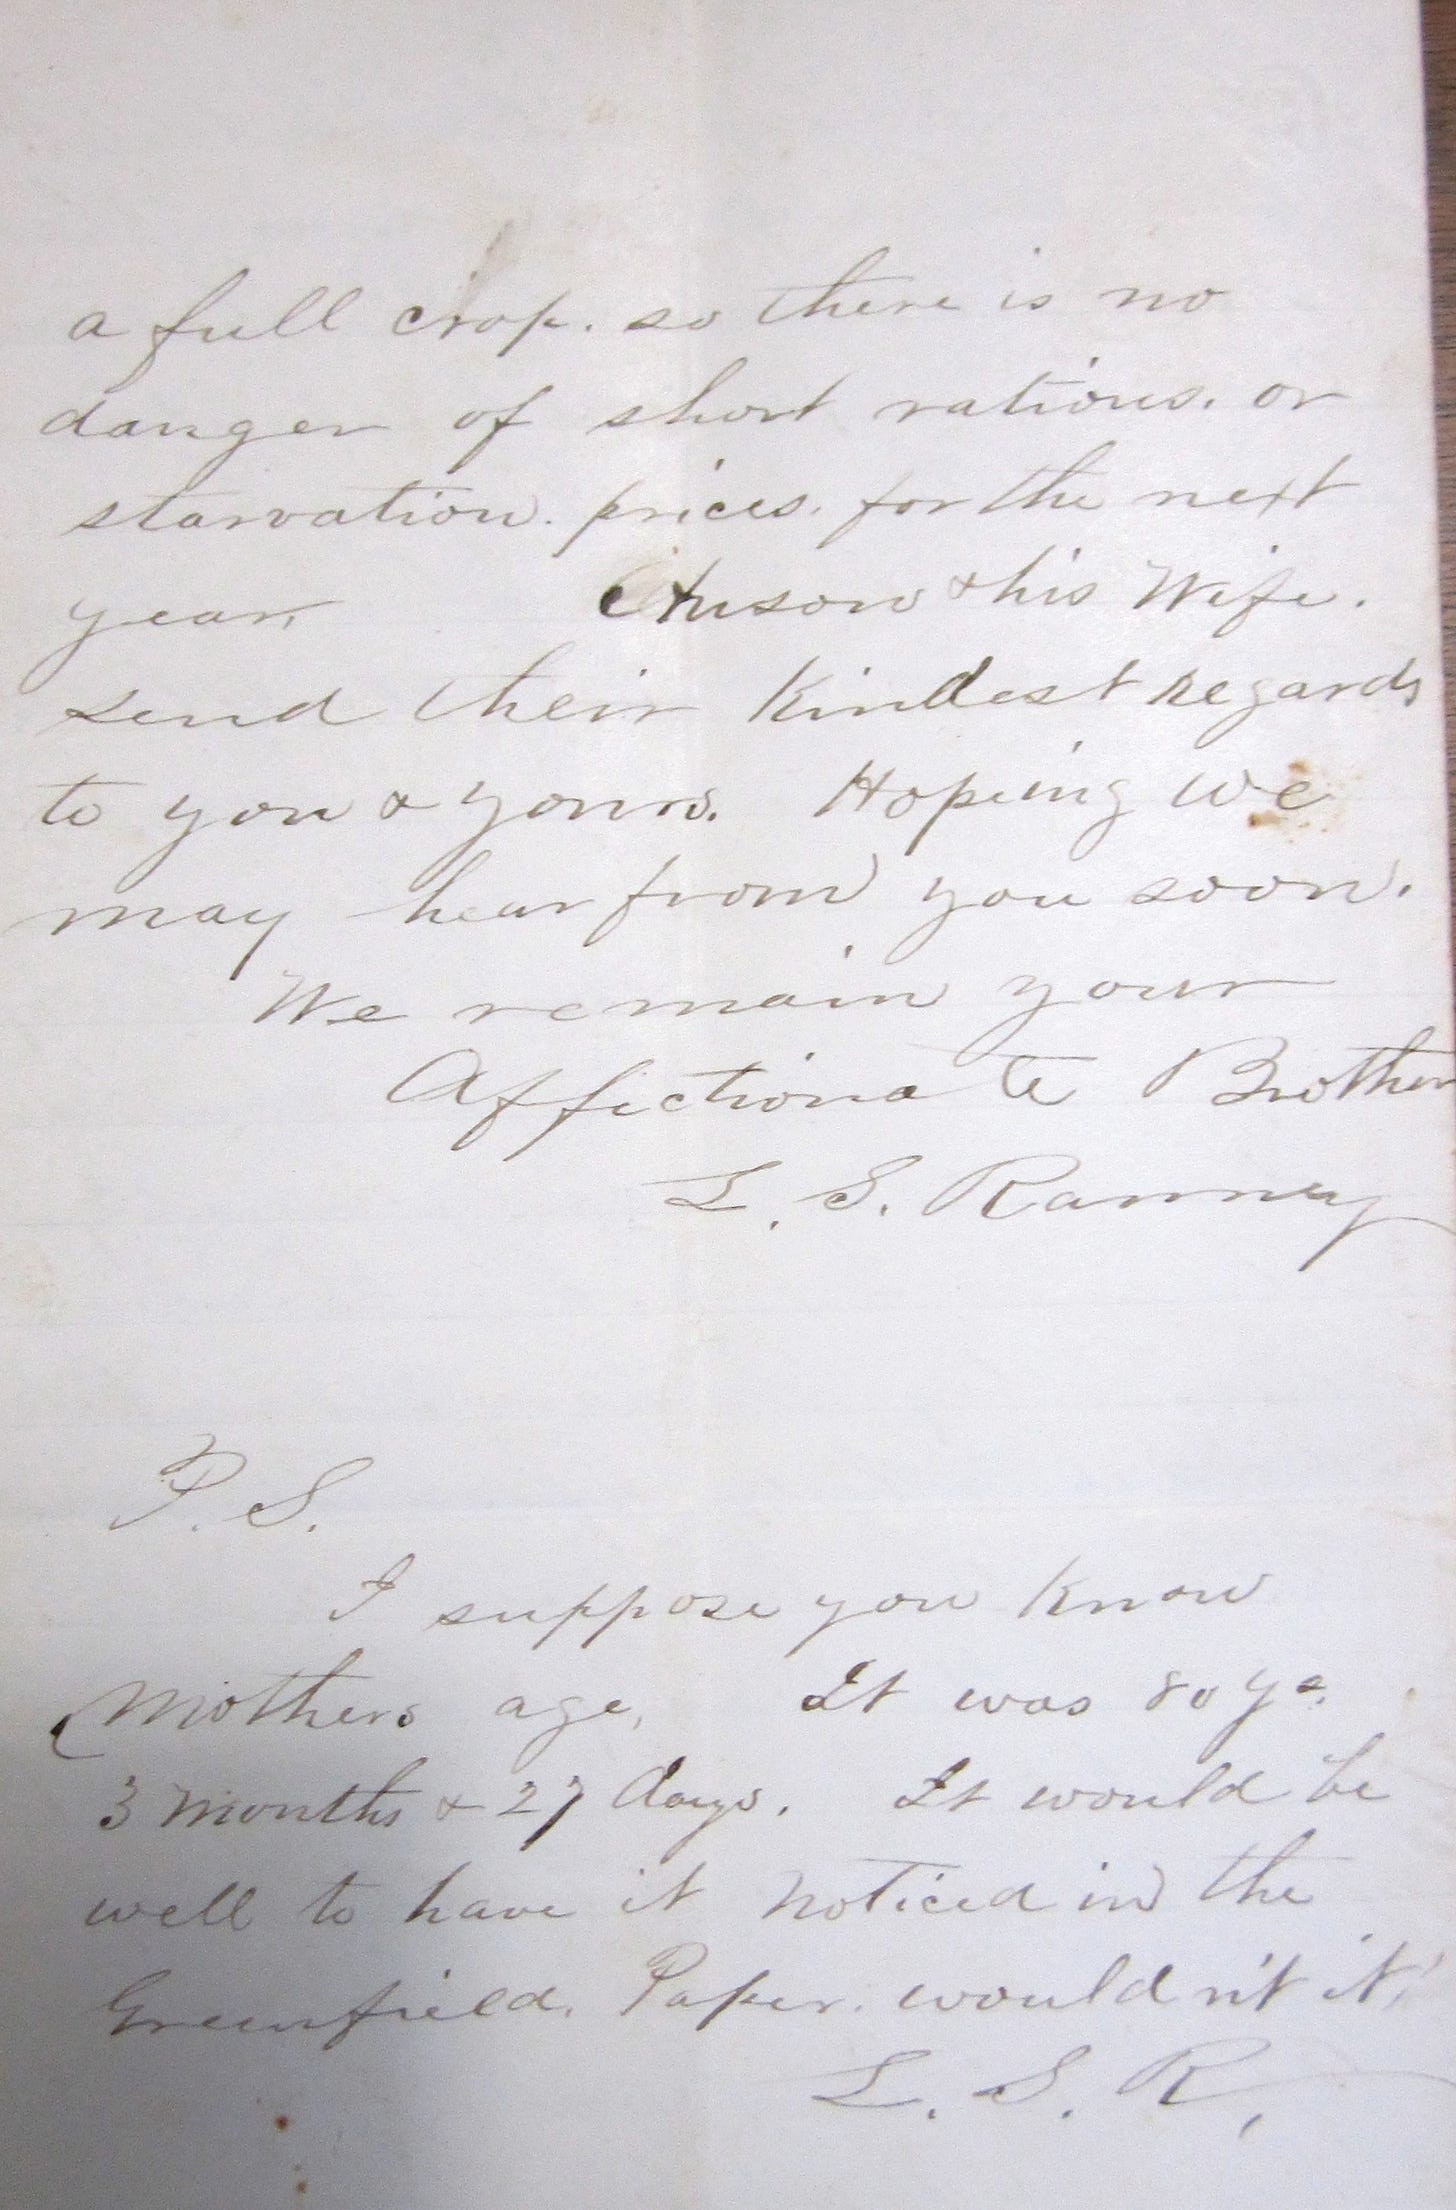 a full crop. so there is no
danger of short rations. or
starvation. prices. for the next
year. Anson & his Wife.
send their Kindest regards
to you & yours. Hoping we
may hear from you soon.
We remain your
Affectionate Brother
L. S. Ranney
P. S.
I suppose you know
Mothers age, It was 80 ys.
3 Months & 27 days. It would be
well to have it noticed in the
Greenfield. Paper. would n't it,
L. S. R,